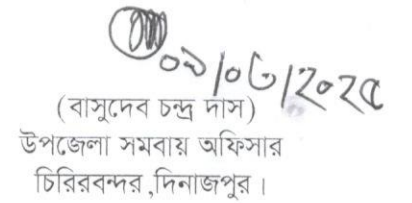 ০৯/০৬/২০২৫
(বাসুদেব চন্দ্র দাস)
উপজেলা সমবায় অফিসার
চিরিরবন্দর ,দিনাজপুর।